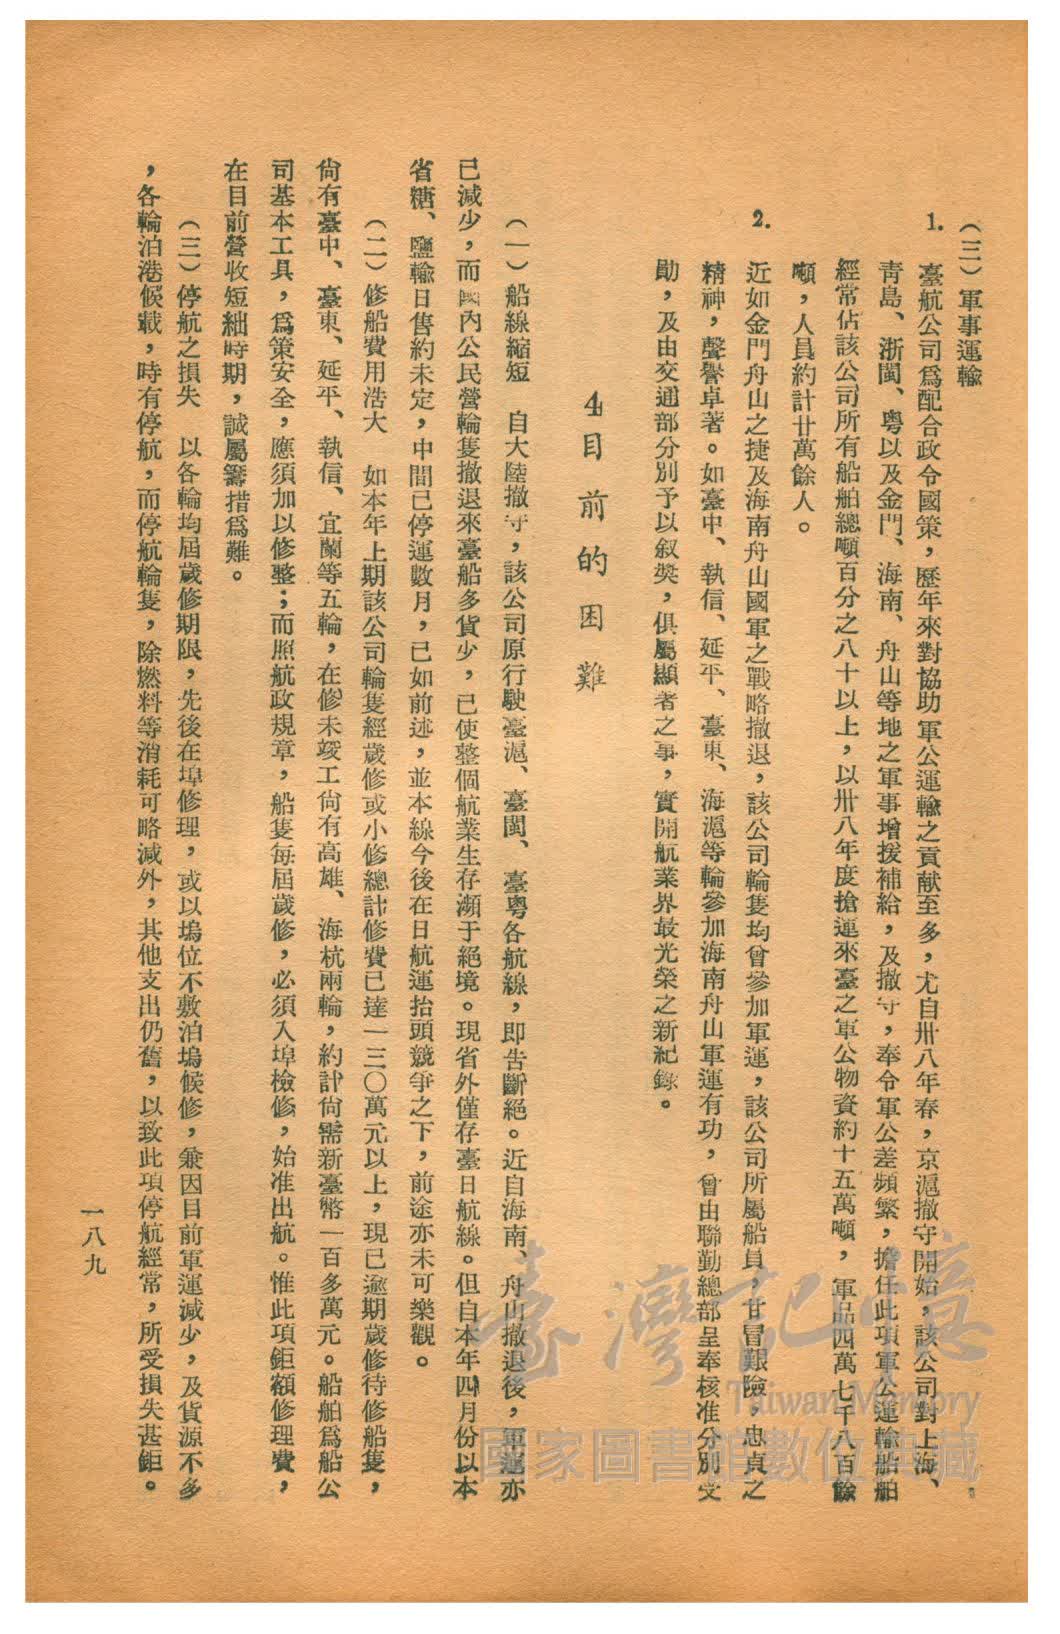 (三)軍事運輸
1. 臺航公司爲配合政令國策，歷年來對協助軍公運輸之貢献至多，尤自卅八年春，京滬撤守開始，該公司對上海、
青島、浙閩、粵以及金門、海南、舟山等地之軍事增援補給，及撤守，奉令軍公差頻繁，擔任此項軍公運輸船舶
經常佔該公司所有船舶總噸百分之八十以上，以卅八年度搶運來臺之軍公物資約十五萬噸，軍品四萬七千八百餘
噸，人員約計廿萬餘人。
2. 近如金門舟山之捷及海南舟山國軍之戰略撤退，該公司輪隻均曾參加軍運，該公司所屬船員，甘冒艱險，忠貞之
精神，聲譽卓著。如臺中、執信、延平、臺東、海滬等輪參加海南舟山軍運有功，曾由聯勤總部呈奉核准分別文
勛，及由交通部分別予以叙奬，俱屬顯者之事，實開航業界最光榮之新紀錄。
4目前的困難
(一)船線縮短　自大陸撤守，該公司原行駛臺滬、臺閩、臺粵各航線，即告斷絕。近自海南、舟山撤退後，軍運亦
已減少，而國內公民營輪隻撤退來臺船多貨少，已使整個航業生存瀕于絕境。現省外僅存臺日航線。但自本年四月份以本
省糖、鹽輸日售約未定，中間已停運數月，已如前述，並本線今後在日航運抬頭競爭之下，前途亦未可樂觀。
(二)修船費用浩大　如本年上期該公司輪隻經歲修或小修總計修費已達一三〇萬元以上，現已逾期歲修待修船隻，
尙有臺中、臺東、延平、執信、宜蘭等五輪，在修未竣工尙有高雄、海杭兩輪，約計尙需新臺幣一百多萬元。船舶爲船公
司基本工具，爲策安全，應須加以修整；而照航政規章，船隻每屆歲修，必須入埠檢修，始准出航。惟此項鉅額修理費，
在目前營收短絀時期，誠屬籌措爲難。
(三)停航之損失　以各輪均屆歲修期限，先後在埠修理，或以塢位不敷泊塢候修，兼因目前軍運減少，及貨源不多
，各輪泊港候載，時有停航，而停航輪隻，除燃料等消耗可略減外，其他支出仍舊，以致此項停航經常，所受損失甚鉅。
一八九
臺灣記憶
Taiwan Memory
國家圖書館數位典藏